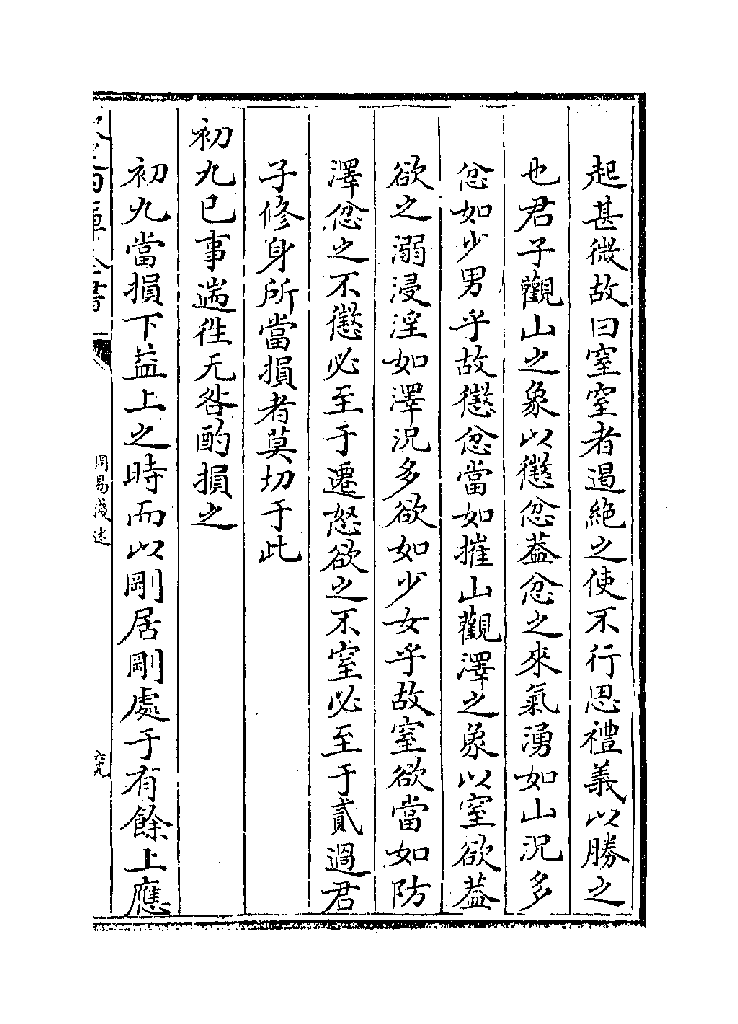 起甚微故曰窒窒者遏絶之使不行思禮義以勝之
也君子觀山之象以懲忿蓋忿之來氣湧如山況多
忿如少男乎故懲忿當如摧山觀澤之象以窒欲蓋
欲之溺浸淫如澤況多欲如少女乎故窒欲當如防
澤忿之不懲必至于遷怒欲之不窒必至于貳過君
子修身所當損者莫切于此
初九已事遄徃无咎酌損之
初九當損下益上之時而以剛居剛處于有餘上應
周易淺述